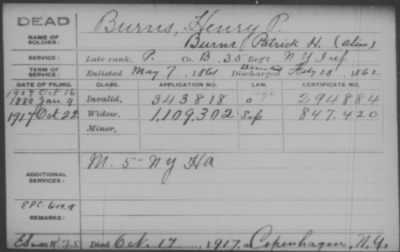 DEAD
NAME OF SOLDIER: Burns, Henry P.
Burns, Patrick H. (alias)
SERVICE: Late rank, P. Co. B, 35 Reg't N Y Inf
TERM OF SERVICE: Enlisted May 7, 1861 Discharged Feby 28, 1862
DATE OF FILING. CLASS. APPLICATION NO. LAW. CERTIFICATE NO.
1907 Oct 16
1880 Jan 9 Invalid, 343818 294884
1917 Oct 22 Widow, 1,109,302 847.420
Minor,
ADDITIONAL SERVICES: M. 5 - N Y HA
REMARKS:
Died Oct. 17, 1917, Copenhagen, N.Y.